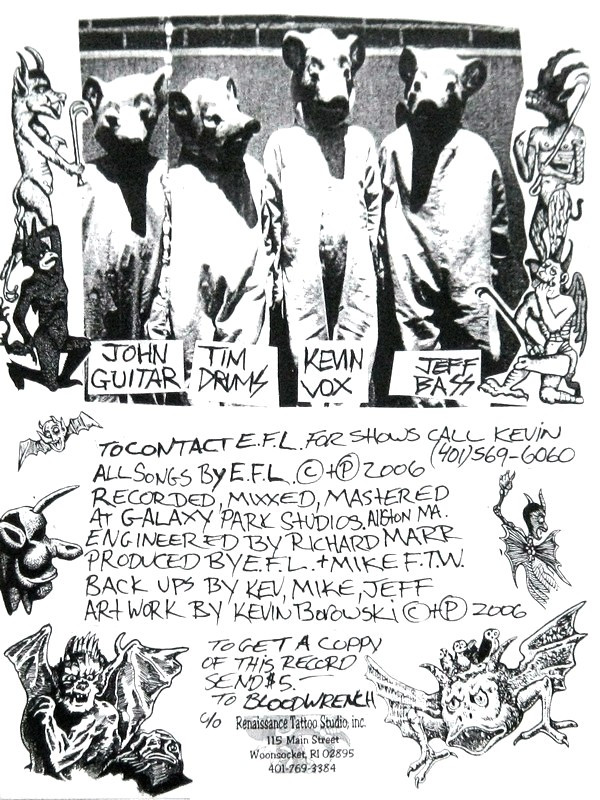 JOHN GUITAR
TIM DRUMS
KEVIN VOX
JEFF BASS
TO CONTACT E.F.L. FOR SHOWS CALL KEVIN
(401) 569-6060
ALL SONGS By E.F.L. © + ℗ 2006
RECORDED, MIXXED, MASTERED
AT GALAXY PARK STUDIOS, AllSTON MA.
ENGINEERED BY RICHARD MARR
PRODUCED BY E.F.L. + MIKE F.T.W.
BACK UPS BY KEV, MIKE, JEFF
ART WORK BY KEVIN Borowski © + ℗ 2006
TO GET A COPPY
OF THIS RECORD
SEND $5.—
TO BLOODWRENCH
C/O Renaissance Tattoo Studio, inc.
115 Main Street
Woonsocket, RI 02895
401-769-3384